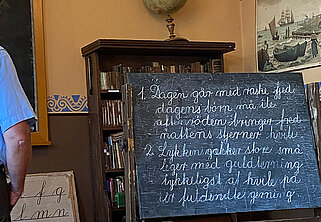 1. Dagen går med raske fjed
dagens børn må ile
aftenrøden bringer fred
nattens stjerner hvile
2. Lykken rækker store små
leger med guldterning
lykkeligst at hvile på
en fuldendt gerning
f g
l m n